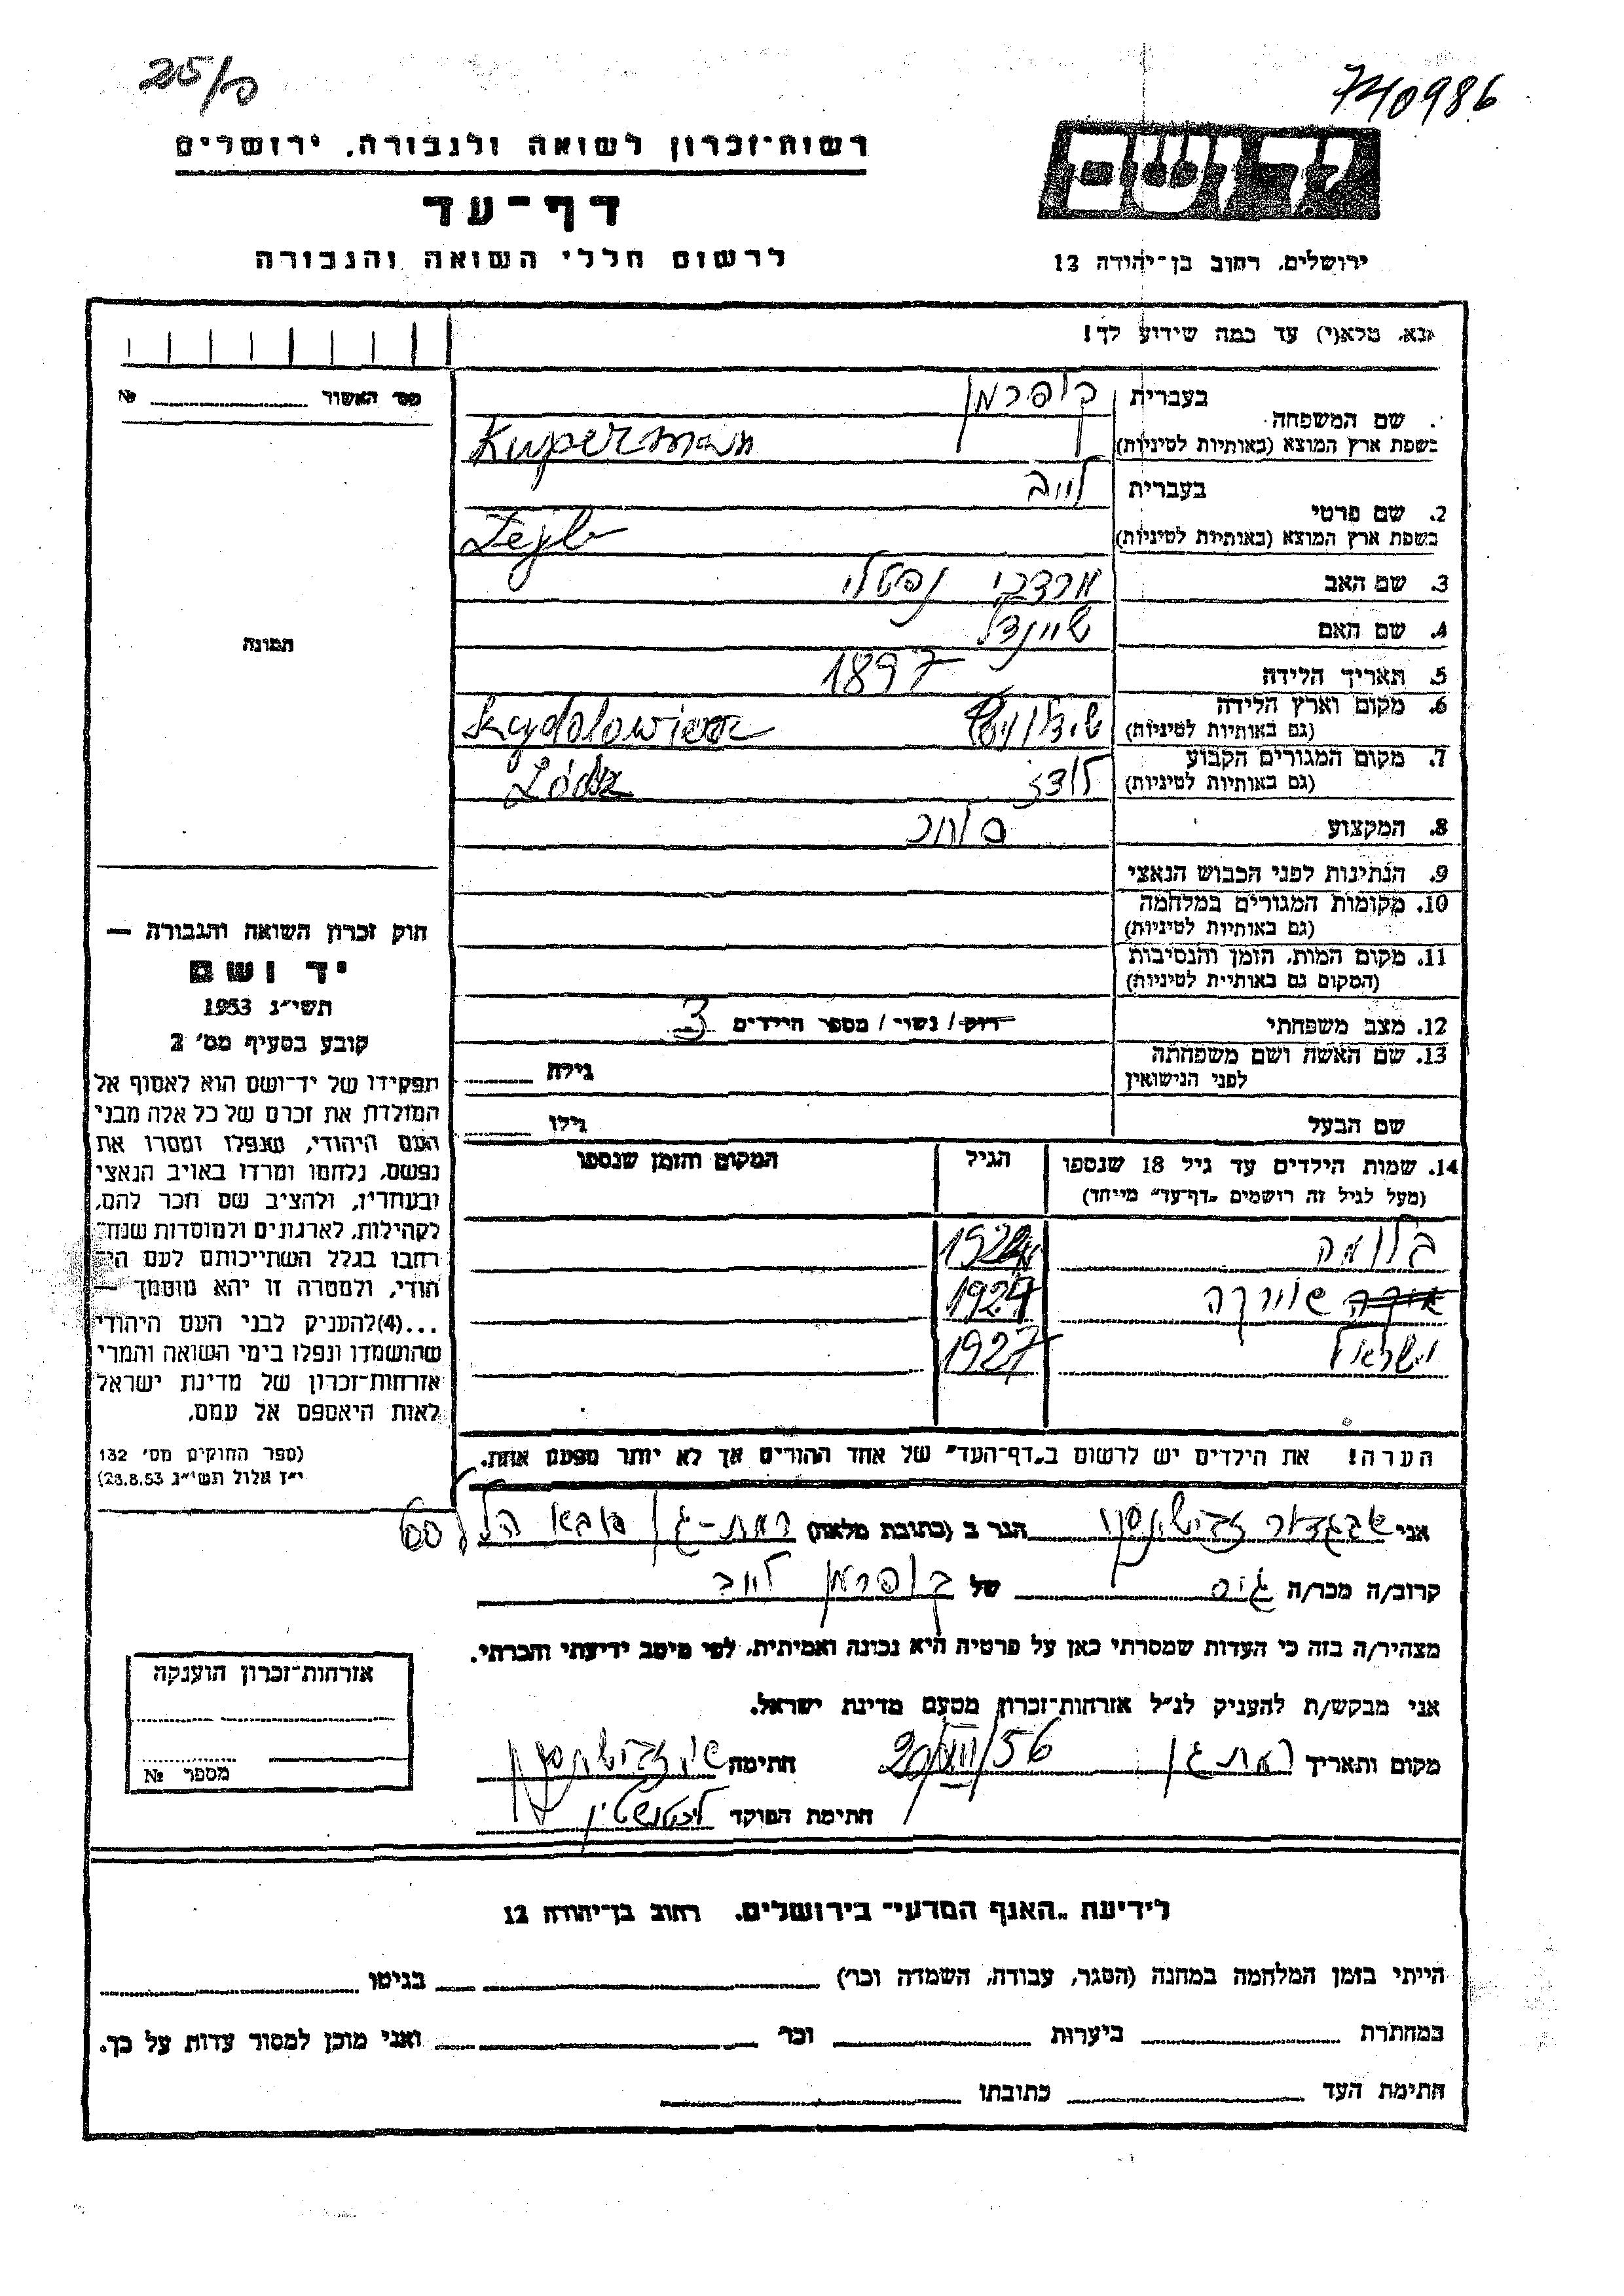 25/ס
740986
רשות־זכרון לשואה ולגבורה, ירושלים
דף־עד
לרשום חללי השואה והגבורה
יד ושם
ירושלים, רחוב בן־יהודה 12
נא, מלא(י) עד כמה שידוע לך!
מס׳ האשור № 
שם המשפחה
בעברית
קופרמן
בשפת ארץ המוצא (באותיות לטיניות)
Kuperman
2. שם פרטי
בעברית
לייב
בשפת ארץ המוצא (באותיות לטיניות)
Lejb
3. שם האב
מרדכי נפטלי
4. שם האם
שיינדל
5. תאריך הלידה
1897
6. מקום וארץ הלידה
(גם באותיות לטיניות)
Szydolowiecz
7. מקום המגורים הקבוע
(גם באותיות לטיניות)
לודז Lódz
8. המקצוע
סוחר
9. הנתינות לפני הכבוש הנאצי
10. מקומות המגורים במלחמה
(גם באותיות לטיניות)
11. מקום המות, הזמן והנסיבות
(המקום גם באותיות לטיניות)
12. מצב משפחתי
רוק / נשוי / מספר הילדים 3
13. שם האשה ושם משפחתה
לפני הנישואין
גילה
שם הבעל
גילו
14. שמות הילדים עד גיל 18 שנספו
(מעל לגיל זה רושמים „דף־עד״ מייחד)
הגיל
המקום והזמן שנספו
בלומה
1924
שורקה
1924
ישראל
1927
הערה! את הילדים יש לרשום ב„דף־העד״ של אחד ההורים אך לא יותר מפעם אחת.
תמונה
חוק זכרון השואה והגבורה —
יד ושם
תשי״ג 1953
קובע בסעיף מס׳ 2
תפקידו של יד־ושם הוא לאסוף אל
המולדת את זכרם של כל אלה מבני
העם היהודי, שנפלו ומסרו את
נפשם, נלחמו ומרדו באויב הנאצי
ובעוזריו, ולהציב שם וזכר להם,
לקהילות, לארגונים ולמוסדות שנח־
רחבו בגלל השתייכותם לעם הי־
הודי, ולמטרה זו יהא מוסמך —
...(4)להעניק לבני העם היהודי
שהושמדו ונפלו בימי השואה והמרי
אזרחות־זכרון של מדינת ישראל
לאות היאספם אל עמם.
(ספר החוקים מס׳ 132
י״ז אלול תשי״ג 28.8.53)
אני אביגדור הגר ב (כתובת מלאה) רמת-גן אבא הלל 60
קרוב/ה מכר/ה גיס של קופרמן לייב
מצהיר/ה בזה כי העדות שמסרתי כאן על פרטיה היא נכונה ואמיתית, לפי מיטב ידיעתי והכרתי.
אני מבקש/ת להעניק לנ״ל אזרחות־זכרון מטעם מדינת ישראל.
מקום ותאריך רמת גן 20/VII/56 חתימה
חתימת הפוקד ליכטנשטין
אזרחות־זכרון הוענקה
מספר №
לידיעת „האגף המדעי״ בירושלים, רחוב בן־יהודה 12
הייתי בזמן המלחמה במחנה (הסגר, עבודה, השמדה וכו׳) בגיטו
במחתרת ביערות וכו׳ ואני מוכן למסור עדות על כך.
חתימת העד כתובתו